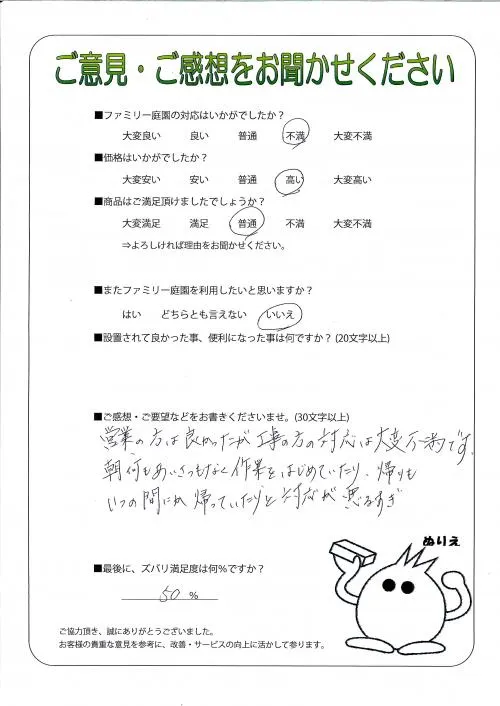 ご意見・ご感想をお聞かせください
■ファミリー庭園の対応はいかがでしたか？
大変良い 良い 普通 不満 大変不満
■価格はいかがでしたか？
大変安い 安い 普通 高い 大変高い
■商品はご満足頂けましたでしょうか？
大変満足 満足 普通 不満 大変不満
⇒よろしければ理由をお聞かせください。
■またファミリー庭園を利用したいと思いますか？
はい どちらとも言えない いいえ
■設置されて良かった事、便利になった事は何ですか？(20文字以上)
■ご感想・ご要望などをお書きくださいませ。(30文字以上)
営業の方は良かったが工事の方の対応は大変不満です。
朝何もあいさつもなく作業をはじめていたり、帰りも
いつの間にか帰っていたりと対応が悪るすぎ
ぬりえ
■最後に、ズバリ満足度は何%ですか？
50 %
ご協力頂き、誠にありがとうございました。
お客様の貴重な意見を参考に、改善・サービスの向上に活かして参ります。